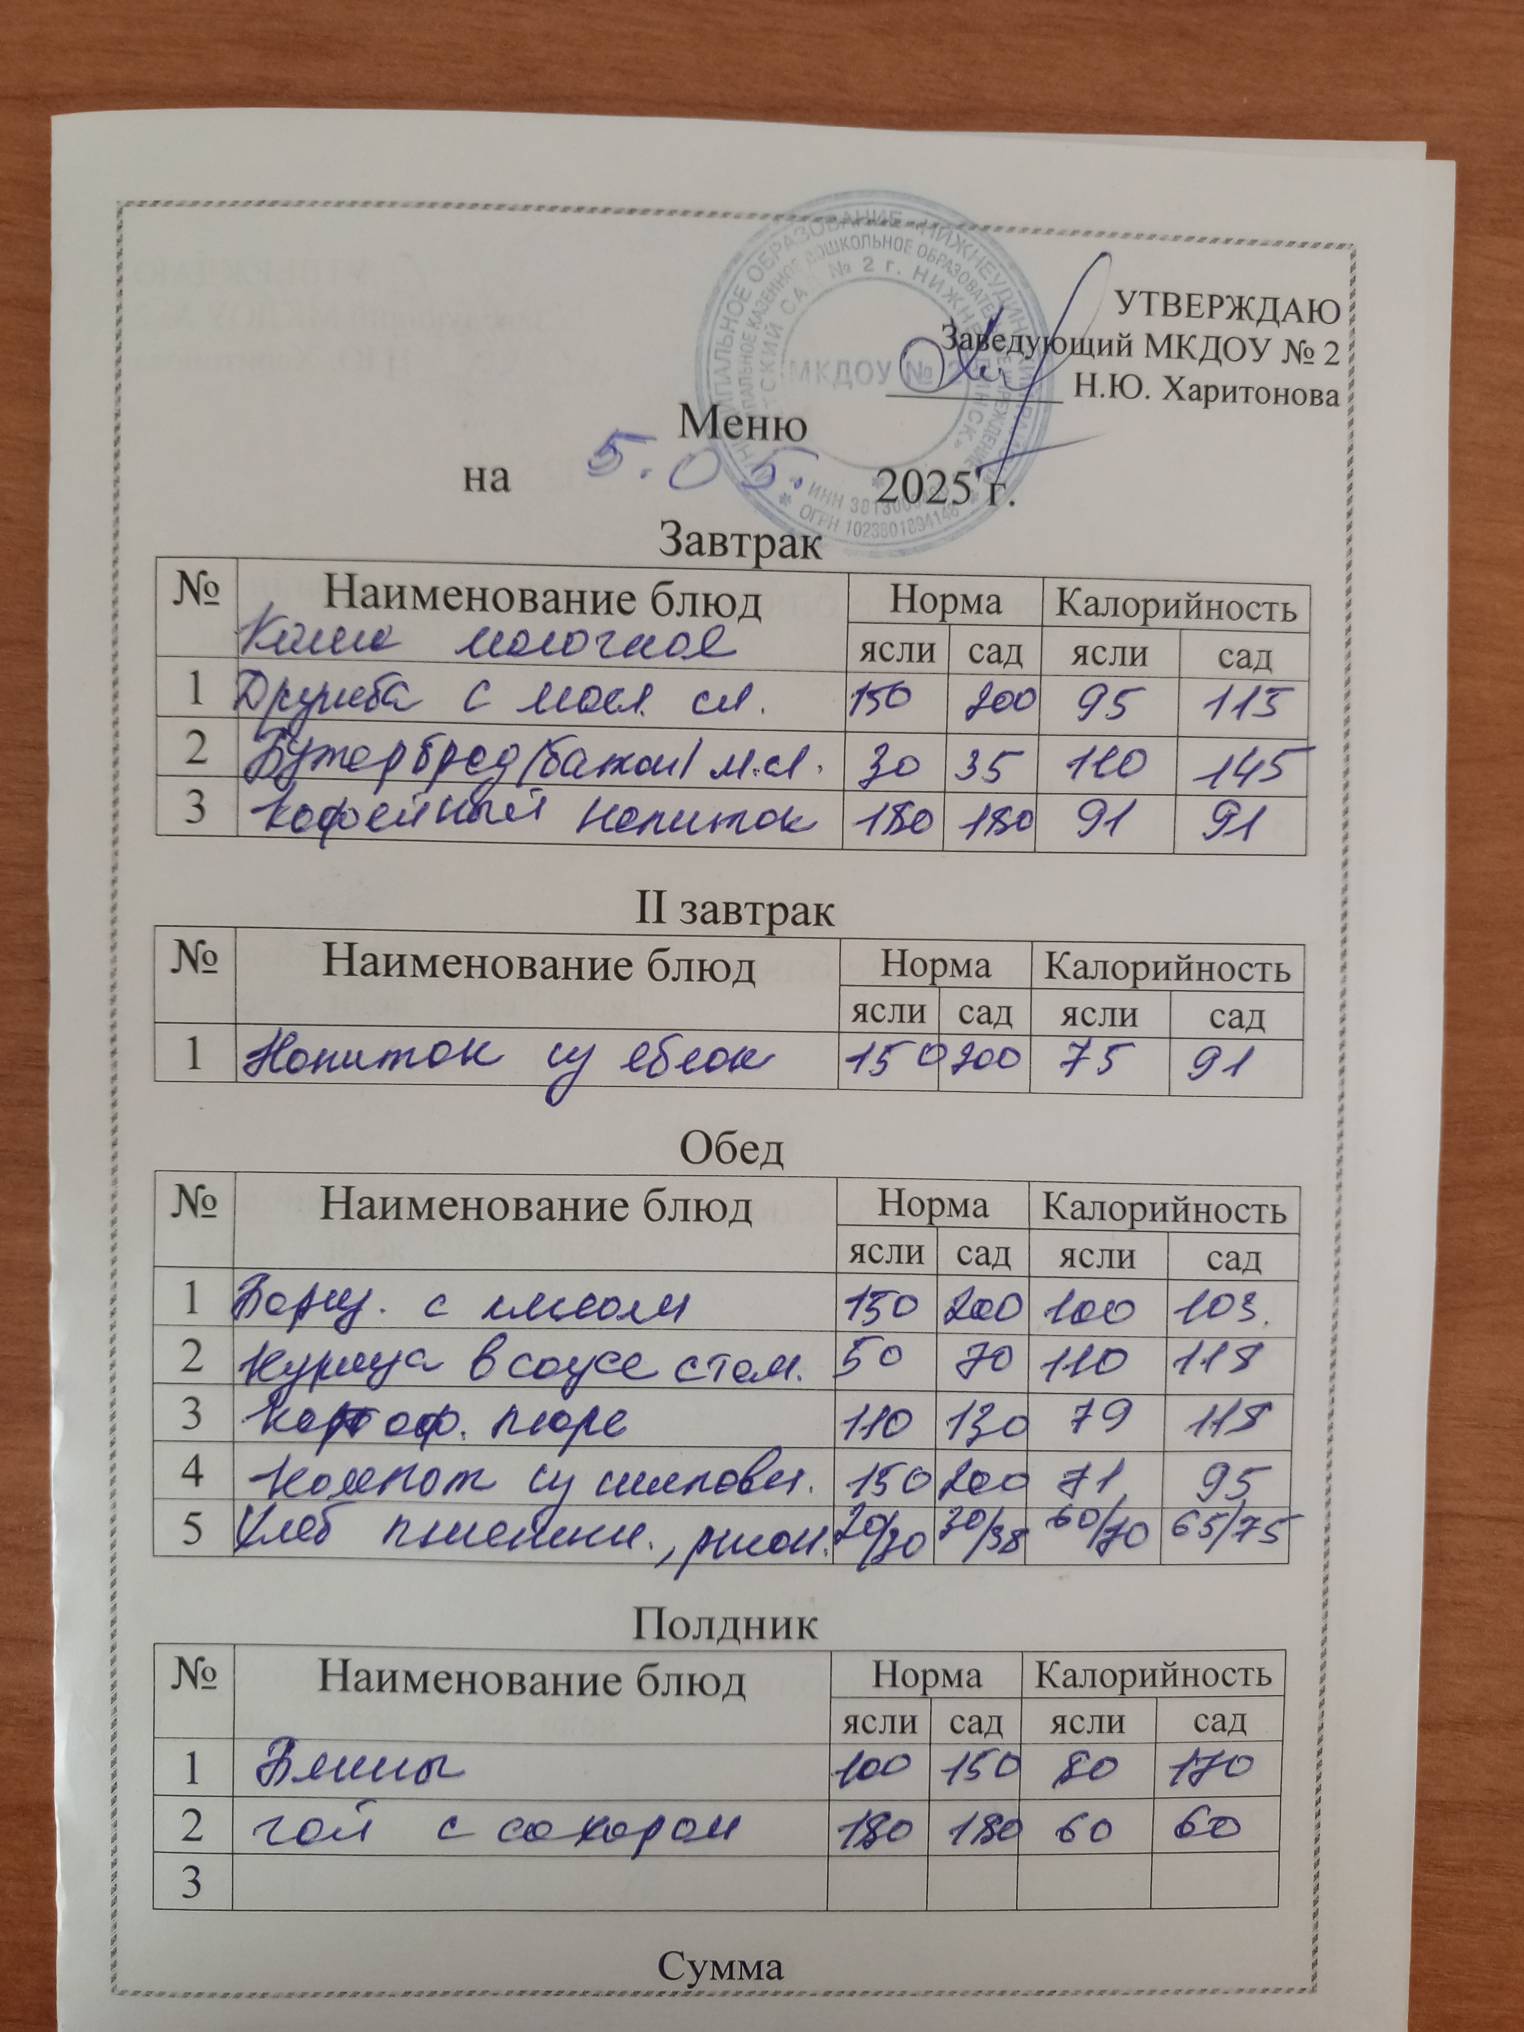 МУНИЦИПАЛЬНОЕ ОБРАЗОВАНИЕ «НИЖНЕУДИНСКИЙ
МКДОУ № 2
УТВЕРЖДАЮ
Заведующий МКДОУ № 2
Н.Ю. Харитонова
Меню
на 5.05. 2025 г.
Завтрак
№ Наименование блюд Норма Калорийность
ясли сад ясли сад
Каша молочная
1 Дружба с масл. сл. 150 200 95 115
2 Бутерброд (батон) м.сл. 30 35 110 145
3 Кофейный напиток 180 180 91 91
II завтрак
№ Наименование блюд Норма Калорийность
ясли сад ясли сад
1 Напиток су яблок 150 200 75 91
Обед
№ Наименование блюд Норма Калорийность
ясли сад ясли сад
1 Борщ. с мясом 150 200 100 103.
2 Курица в соусе с том. 50 70 110 118
3 картоф. пюре 110 130 79 118
4 Компот су шиповн. 150 200 71 95
5 Хлеб пшеничн., ржан. 20/30 30/38 60/70 65/75
Полдник
№ Наименование блюд Норма Калорийность
ясли сад ясли сад
1 Блины 100 150 80 170
2 чай с сахаром 180 180 60 60
3
Сумма